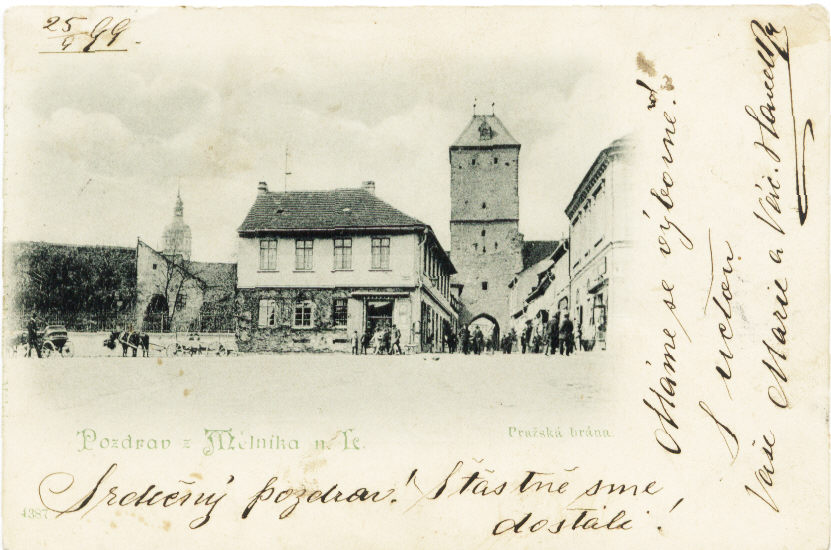 25/9 99.
Pozdrav z Mělníka n. L.
Pražská brána.
4387
Srdečný pozdrav! Šťastně sme
dostali!
Máme se výborně!
S úctou
Vaše Marie a Věrč.